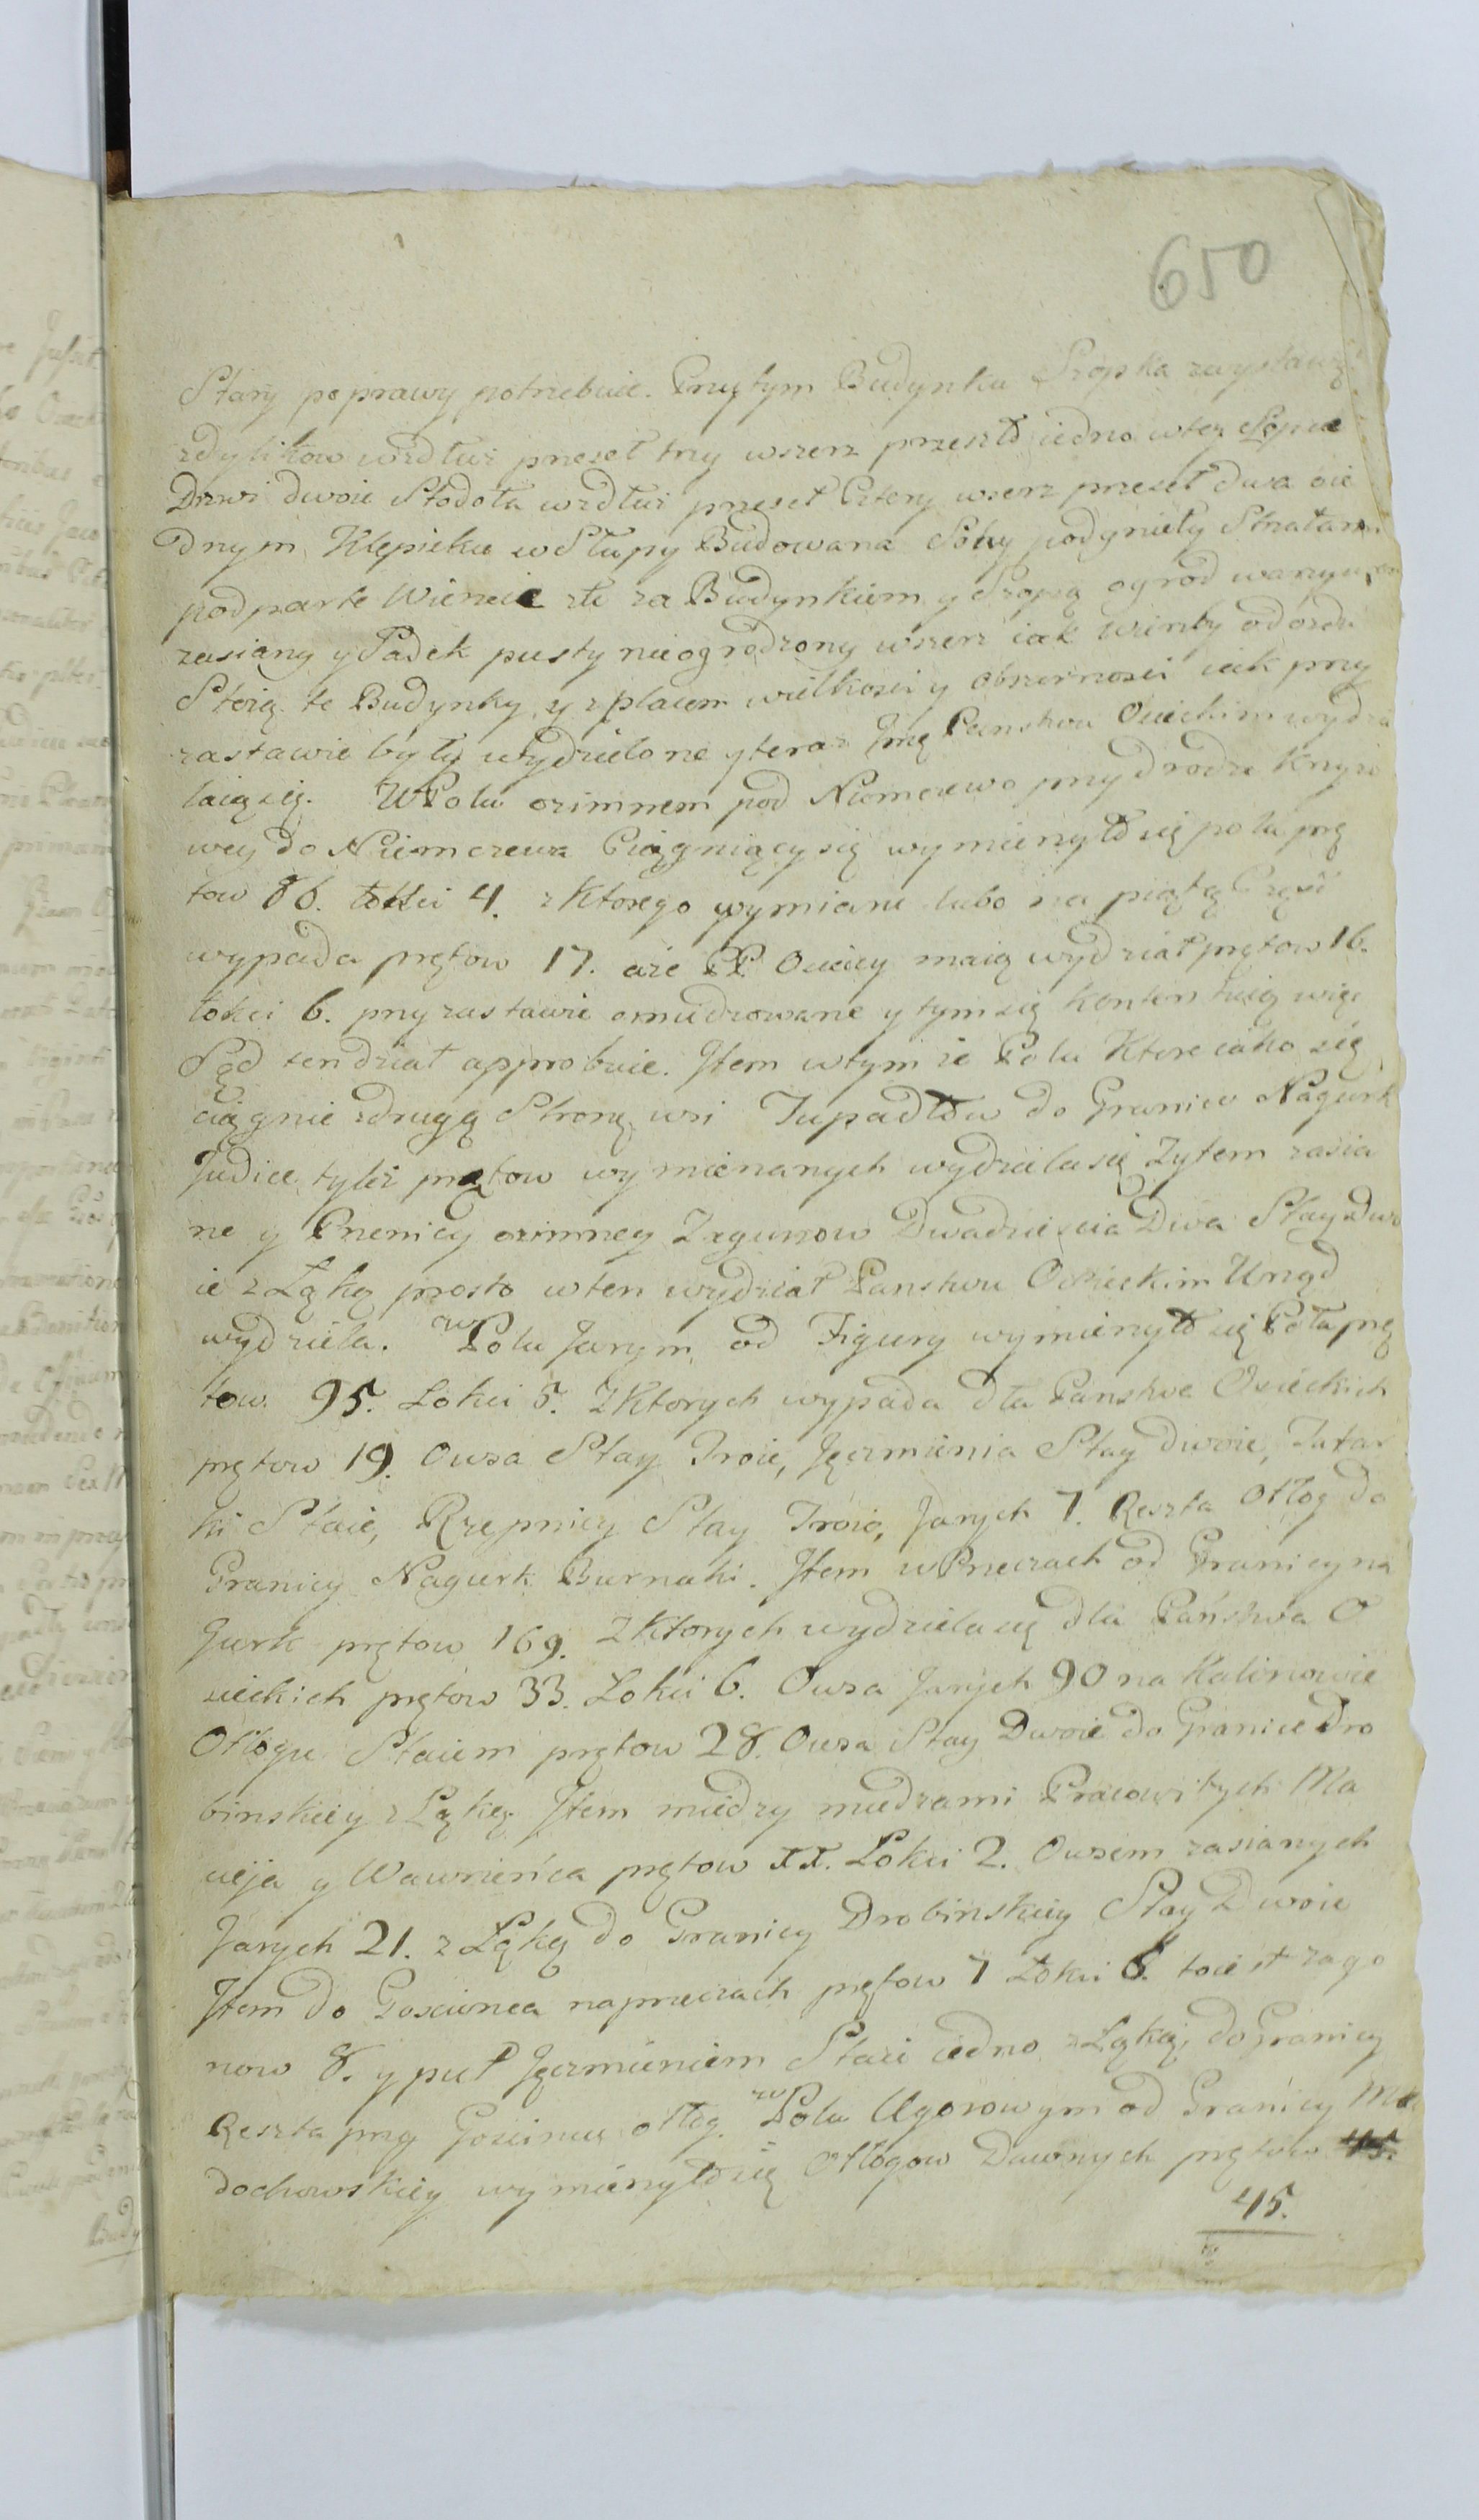 650
Stary poprawy potrzebuie. Przytym Budynku Szopka
zdylikow wzdłuż przeseł trzy wszerz przeszło iedno wtez Szopce
Drzwi dwoie Stodoła wzdłuż przeseł Cztery wszerz przeseł dwa oie
dnym Klepisku w Słupy Budowana Sochy podgnieły Stratam
podparte Wience złe za Budynkiem y Szopą ogrod warzywem
zasiany y Sadek pusty nieogrodzony wszerz iak
Stoią te Budynky y z placem wielkosci y obszernosci iak przy
zastawie były wydzielone y teraz Jmę Panstwu Osieckim wydzie
laią się. W Polu ozimnem pod Niemczewo przy drodze Krzyzo
wey do Niemczewa Ciągniący się wymienyło się pola prę
tow 86. łokci 4. z Ktorego wymiaru lubo na piątą Częsc
wypada prętow 17. ale PP Osieccy maią wydział prętow 16.
łokci 6. przy zastawie omiedzowane y tym się kontentuią więc
Sąd ten dział approbuie. Jtem w tym ze Polu Ktore iako się
ciągnie z drugą Stronę wsi Zupadłow do Granice Nagurk
Judice tyleż prętow wymienanych wydziela się zytem zasia
ne y Pszenicy ozimney Zagunow Dwadziescia Dwa Stay Dwo
ie z Łąką prosto w ten wydział Panstwu Osieckim Urząd
wydziela. w Polu Jarym od Figury wymienyło się Pola prę
tow 95. Łokci 5. Z Ktorych wypada dla Panstwa Osieckich
prętow 19. Owsa Stay Troie, Jęczmienia Stay dwoie, Tatar
ki Staie, Rzepnicy Stay Troie, Jarych 7. Reszta Otłog do
Granicy Nagurk Burnaki. Jtem w Przeczach od Granicy na
Gurk prętow 169. Z Ktorych wydziela się dla Państwa O
sieckich prętow 33. Łokci 6. Owsa Jarych 90 na Kalinowie
Otłogu Staiem prętow 28. Owsa Stay Dwoie do Granice Dro
binskiey z Łąką Jtem miedzy miedzami Pracowitych Ma
cieja y Wawrzeńca prętow XX. Łokci 2. Owsem zasianych
Jarych 21. z Łąką do Granicy Drobinskiey Stay Dwoie
Jtem do Goscienca naprzeczach prętow 7 Łokci 6. toiest zago
now 8. y puł Jęczmieniem Staie iedno z Łąką do Granicy
Reszta przy Goscincu otłog. w Polu Ugorowym od Granicy Ma
dochowskiey wymienyło się Otłogow Dawnych prętow 45.
45.